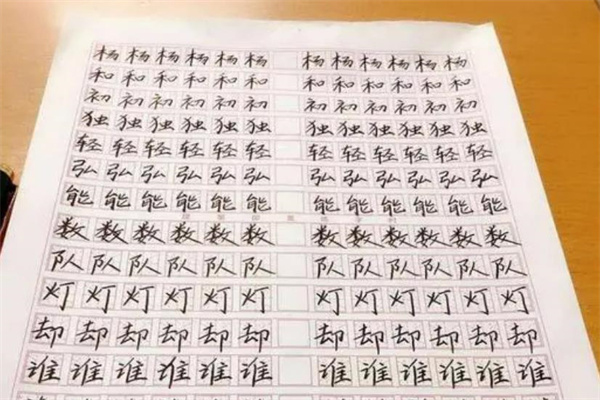 杨杨杨杨杨杨 杨杨杨杨杨杨
和和和和和和 和和和和和和
初初初初初初 初初初初初初
独独独独独独 独独独独独独
轻轻轻轻轻轻 轻轻轻轻轻轻
弘弘弘弘弘弘 弘弘弘弘弘弘
能能能能能能 能能能能能能
数数数数数数 数数数数数数
队队队队队队 队队队队队队
灯灯灯灯灯灯 灯灯灯灯灯灯
却却却却却却 却却却却却却
谁谁谁谁谁谁 谁谁谁谁谁谁